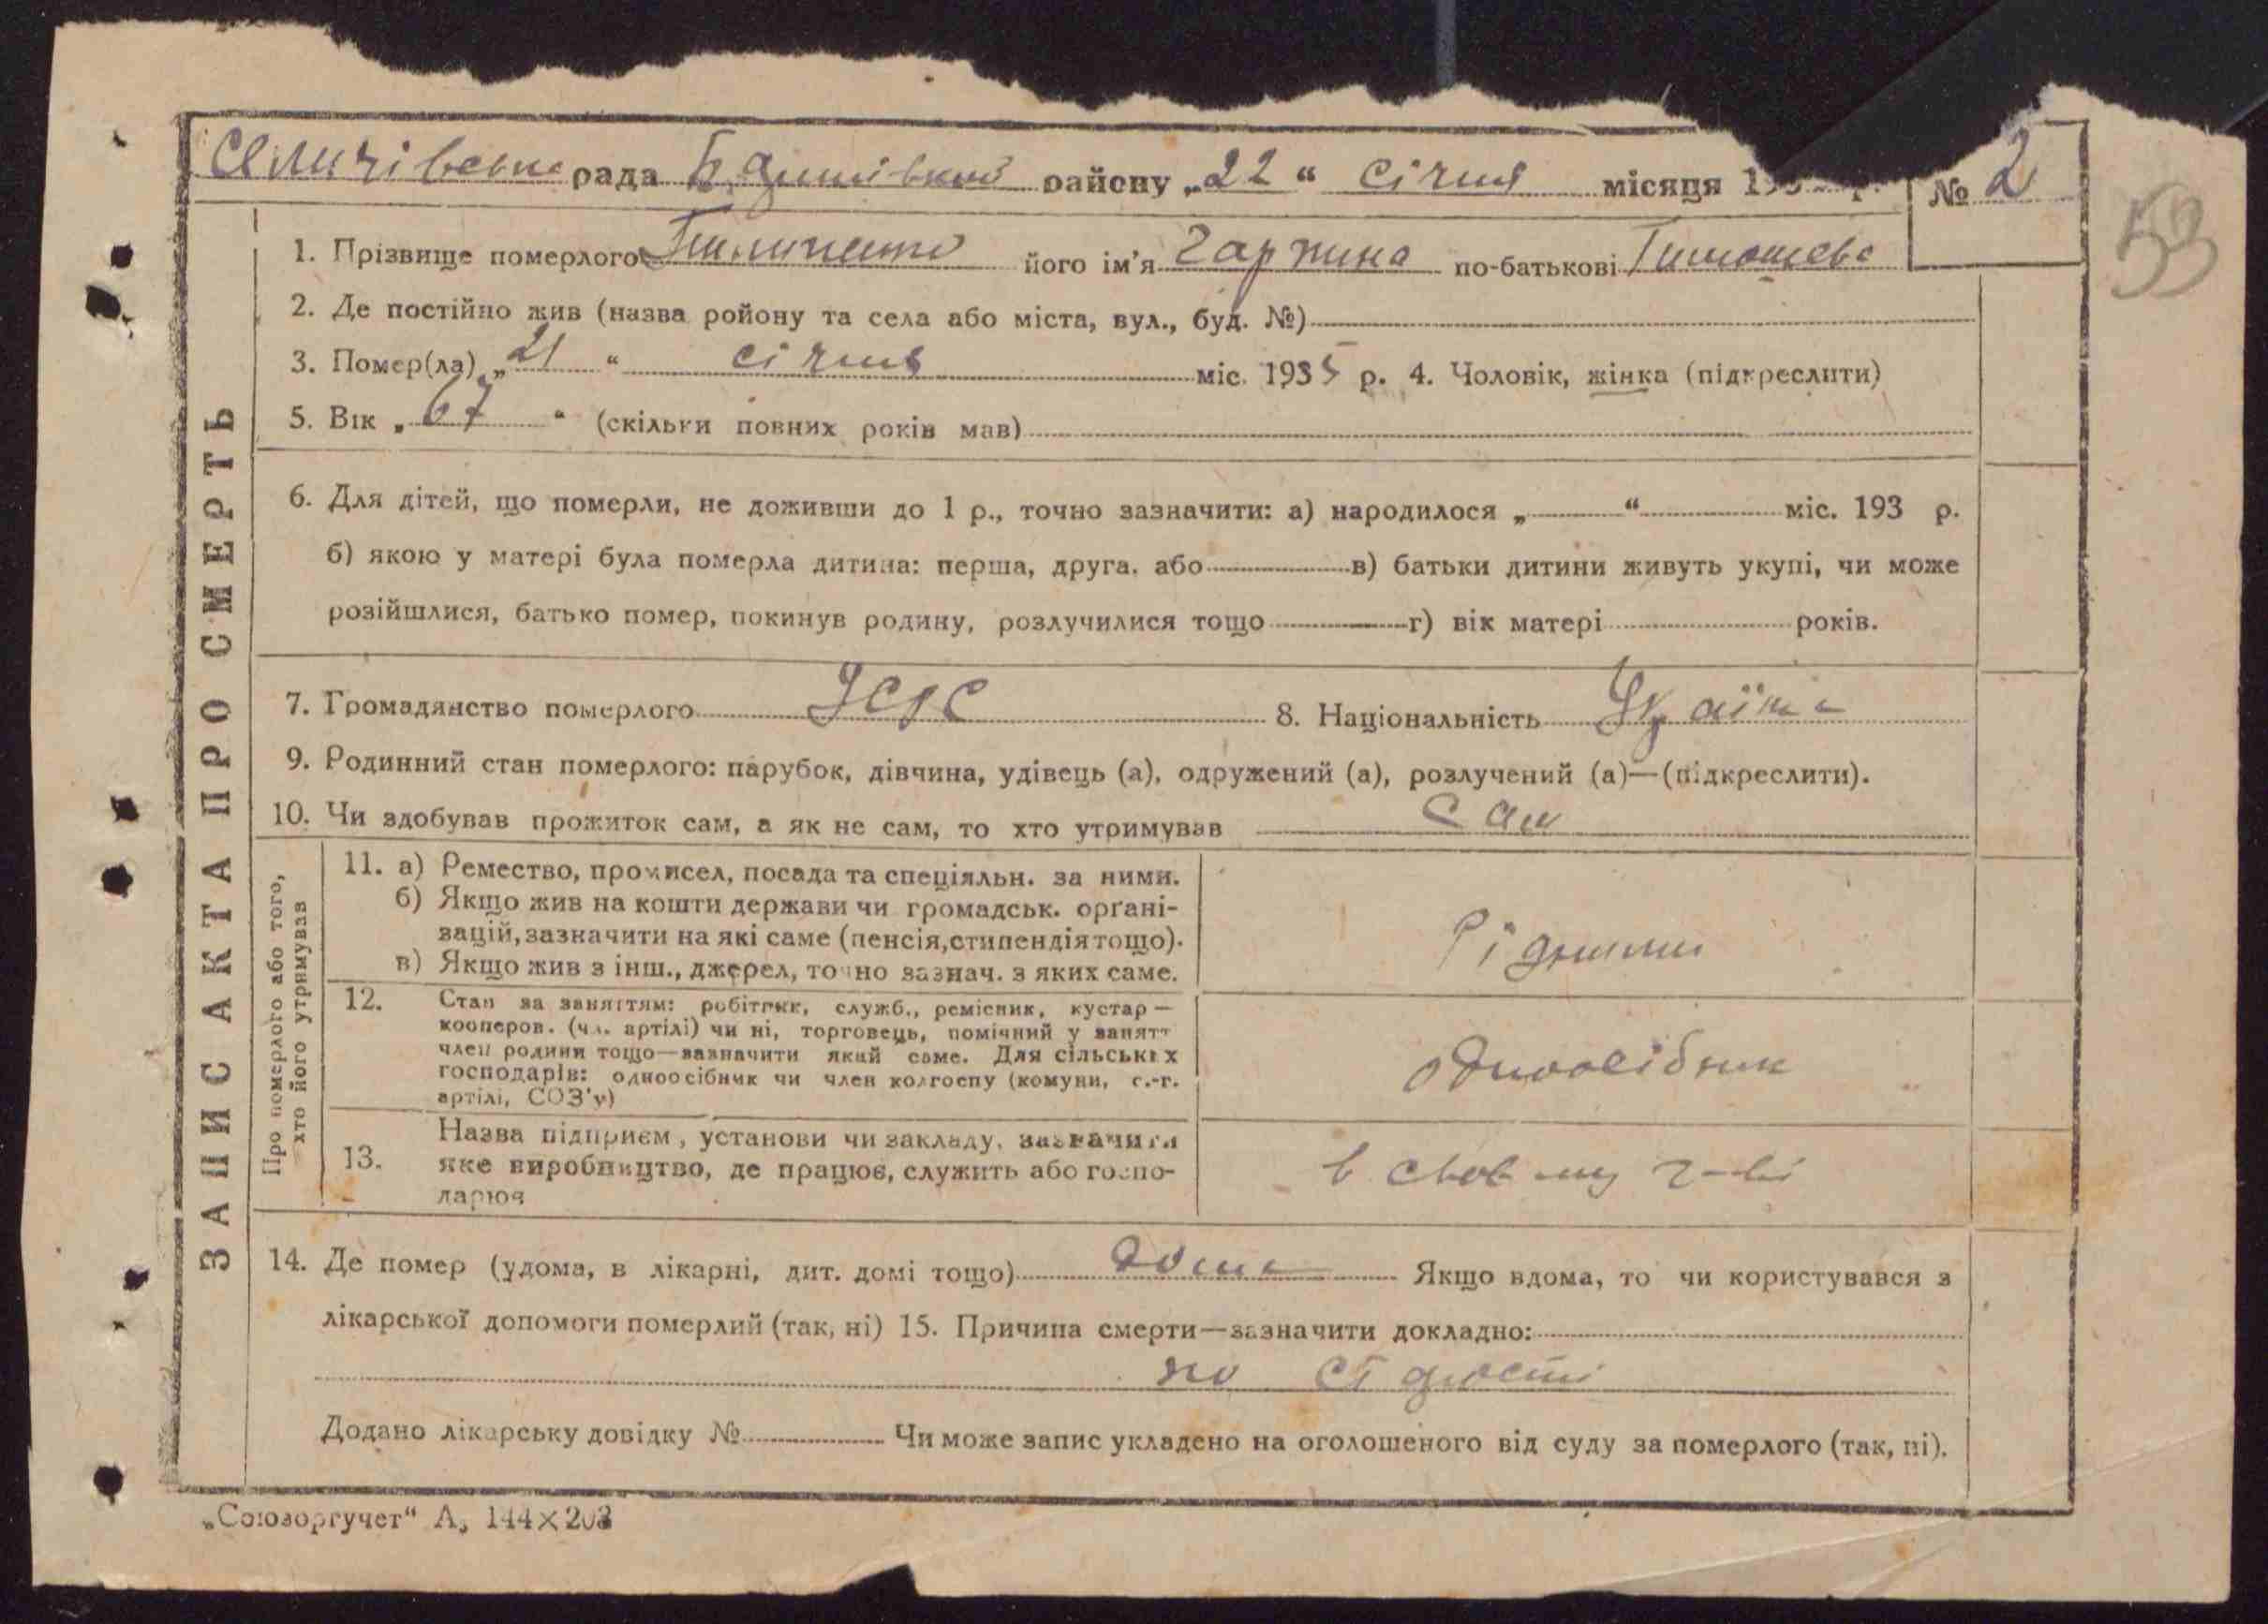 Селичівська рада району „22“ січня місяця 193 р. № 2
53
1. Прізвище померлого його ім'я Гарпина по-батькові Тимошева
2. Де постійно жив (назва ройону та села або міста, вул., буд. №)
3. Помер(ла) „21“ січня міс. 1935 р. 4. Чоловік, жінка (підкреслити)
5. Вік „67“ (скільки повних років мав)
6. Для дітей, що померли, не доживши до 1 р., точно зазначити: а) народилося „ “ міс. 193 р.
б) якою у матері була померла дитина: перша, друга, або в) батьки дитини живуть укупі, чи може
розійшлися, батько помер, покинув родину, розлучилися тощо г) вік матері років.
7. Громадянство померлого УСРС 8. Національність Україн
9. Родинний стан померлого: парубок, дівчина, удівець (а), одружений (а), розлучений (а)—(підкреслити).
10. Чи здобував прожиток сам, а як не сам, то хто утримував Сам
ЗАПИС АКТА ПРО СМЕРТЬ
Про померлого або того,
хто його утримував
11. а) Ремество, промисел, посада та спеціяльн. за ними.
б) Якщо жив на кошти держави чи громадськ. орґані-
зацій, зазначити на які саме (пенсія, стипендія тощо).
в) Якщо жив з інш., джерел, точно зазнач. з яких саме.
Рідними
12. Стан за заняттям: робітник, служб., ремісник, кустар —
кооперов. (чл. артілі) чи ні, торговець, помічний у занятт
член родини тощо—зазначити який саме. Для сільських
господарів: одноосібник чи член колгоспу (комуни, с.-г.
артілі, СОЗ'у)
одноосібник
13. Назва підприєм, установи чи закладу, зазначити
яке виробництво, де працює, служить або госпо-
дарює
в своєму г-ві
14. Де помер (удома, в лікарні, дит. домі тощо) дома Якщо вдома, то чи користувався з
лікарської допомоги померлий (так, ні) 15. Причина смерти—зазначити докладно:
по старості
Додано лікарську довідку № Чи може запис укладено на оголошеного від суду за померлого (так, ні).
„Союзоргучет“ А, 144×203